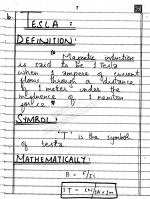 7
b. TESLA:
DEFINITION:
" Magnetic induction
is said to be 1 Tesla
when 1 ampere of current
flows through a distance
of 1 meter under the
influence of 1 newton
force "
SYMBOL:
'T' is the symbol
of tesla
MATHEMATICALLY:
B = F/IL
1T = 1N/1A×1m